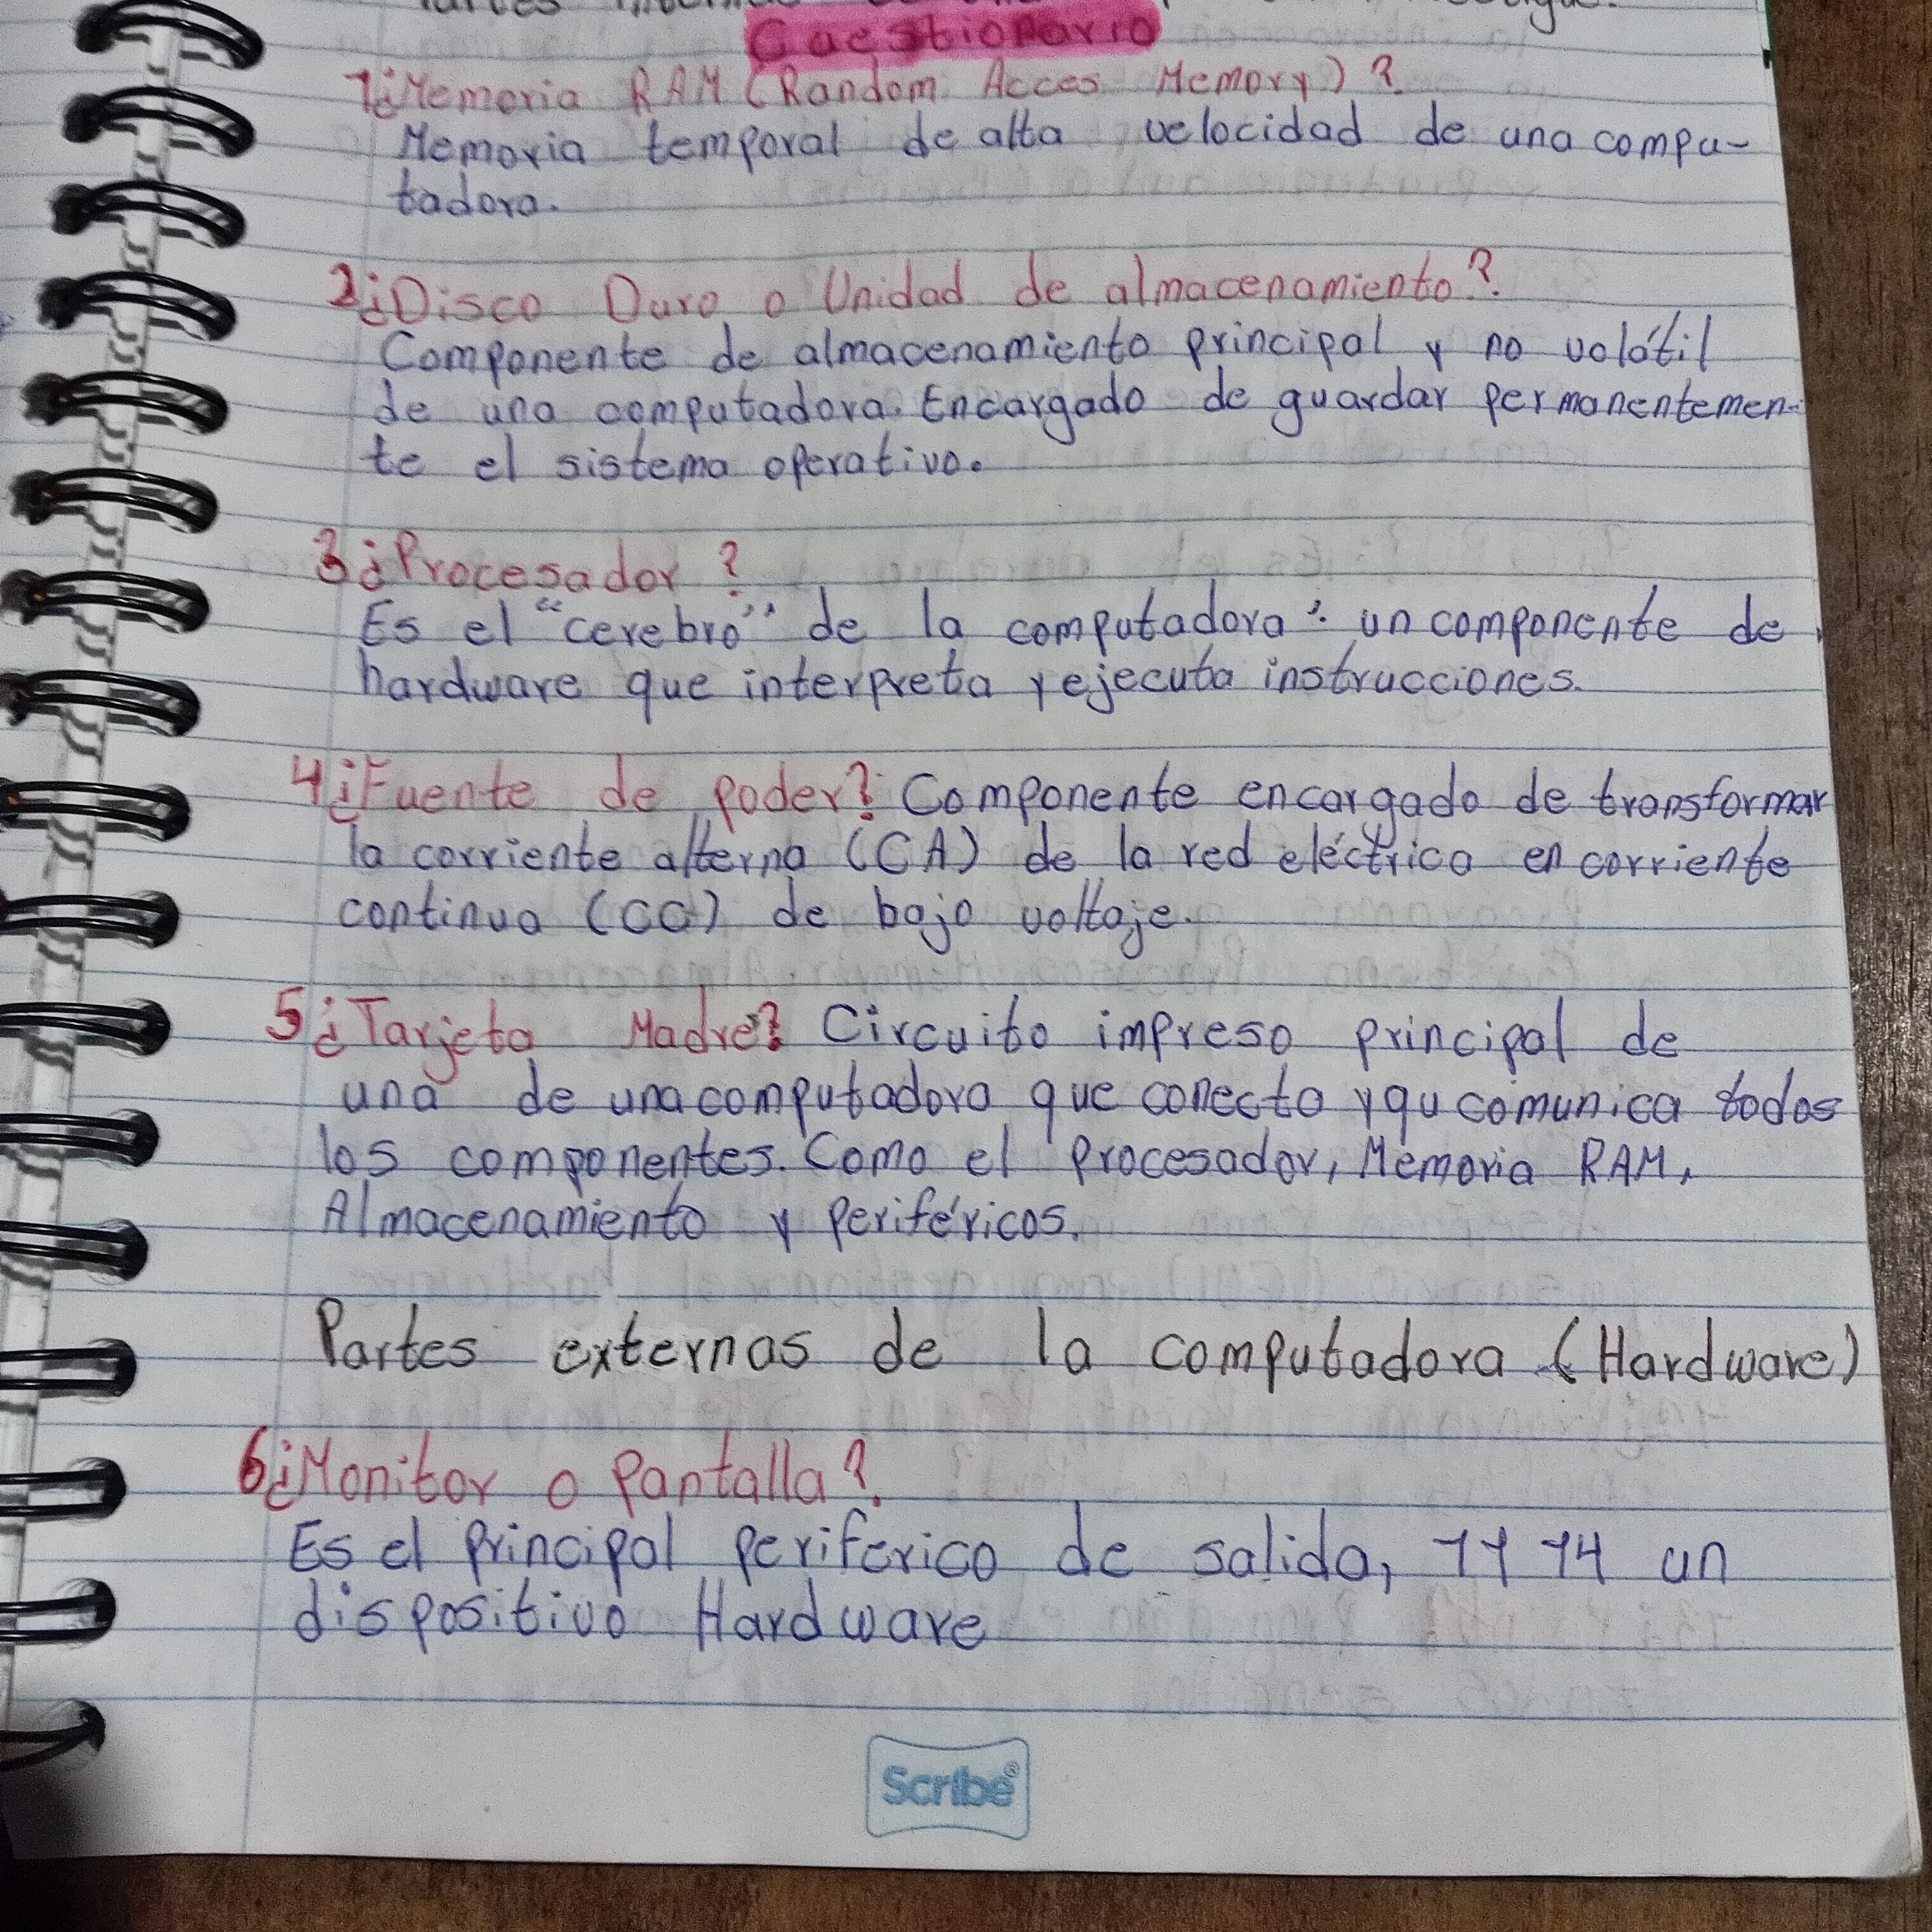 Cuestionario
1¿Memoria RAM (Random Acces Memory)?
Memoria temporal de alta velocidad de una compu-
tadora.
2¿Disco Duro o Unidad de almacenamiento?
Componente de almacenamiento principal y no volátil
de una computadora. Encargado de guardar permanentemen-
te el sistema operativo.
3¿Procesador?
Es el "cerebro" de la computadora: un componente de
hardware que interpreta y ejecuta instrucciones.
4¿Fuente de poder? Componente encargado de transformar
la corriente alterna (CA) de la red eléctrica en corriente
continua (CC) de bajo voltaje.
5¿Tarjeta Madre? Circuito impreso principal de
una de una computadora que conecta y qu comunica todos
los componentes. Como el procesador, Memoria RAM,
Almacenamiento y periféricos.
Partes externas de la computadora (Hardware)
6¿Monitor o Pantalla?
Es el principal periferico de salida, un
dispositivo Hardware
Scribe®